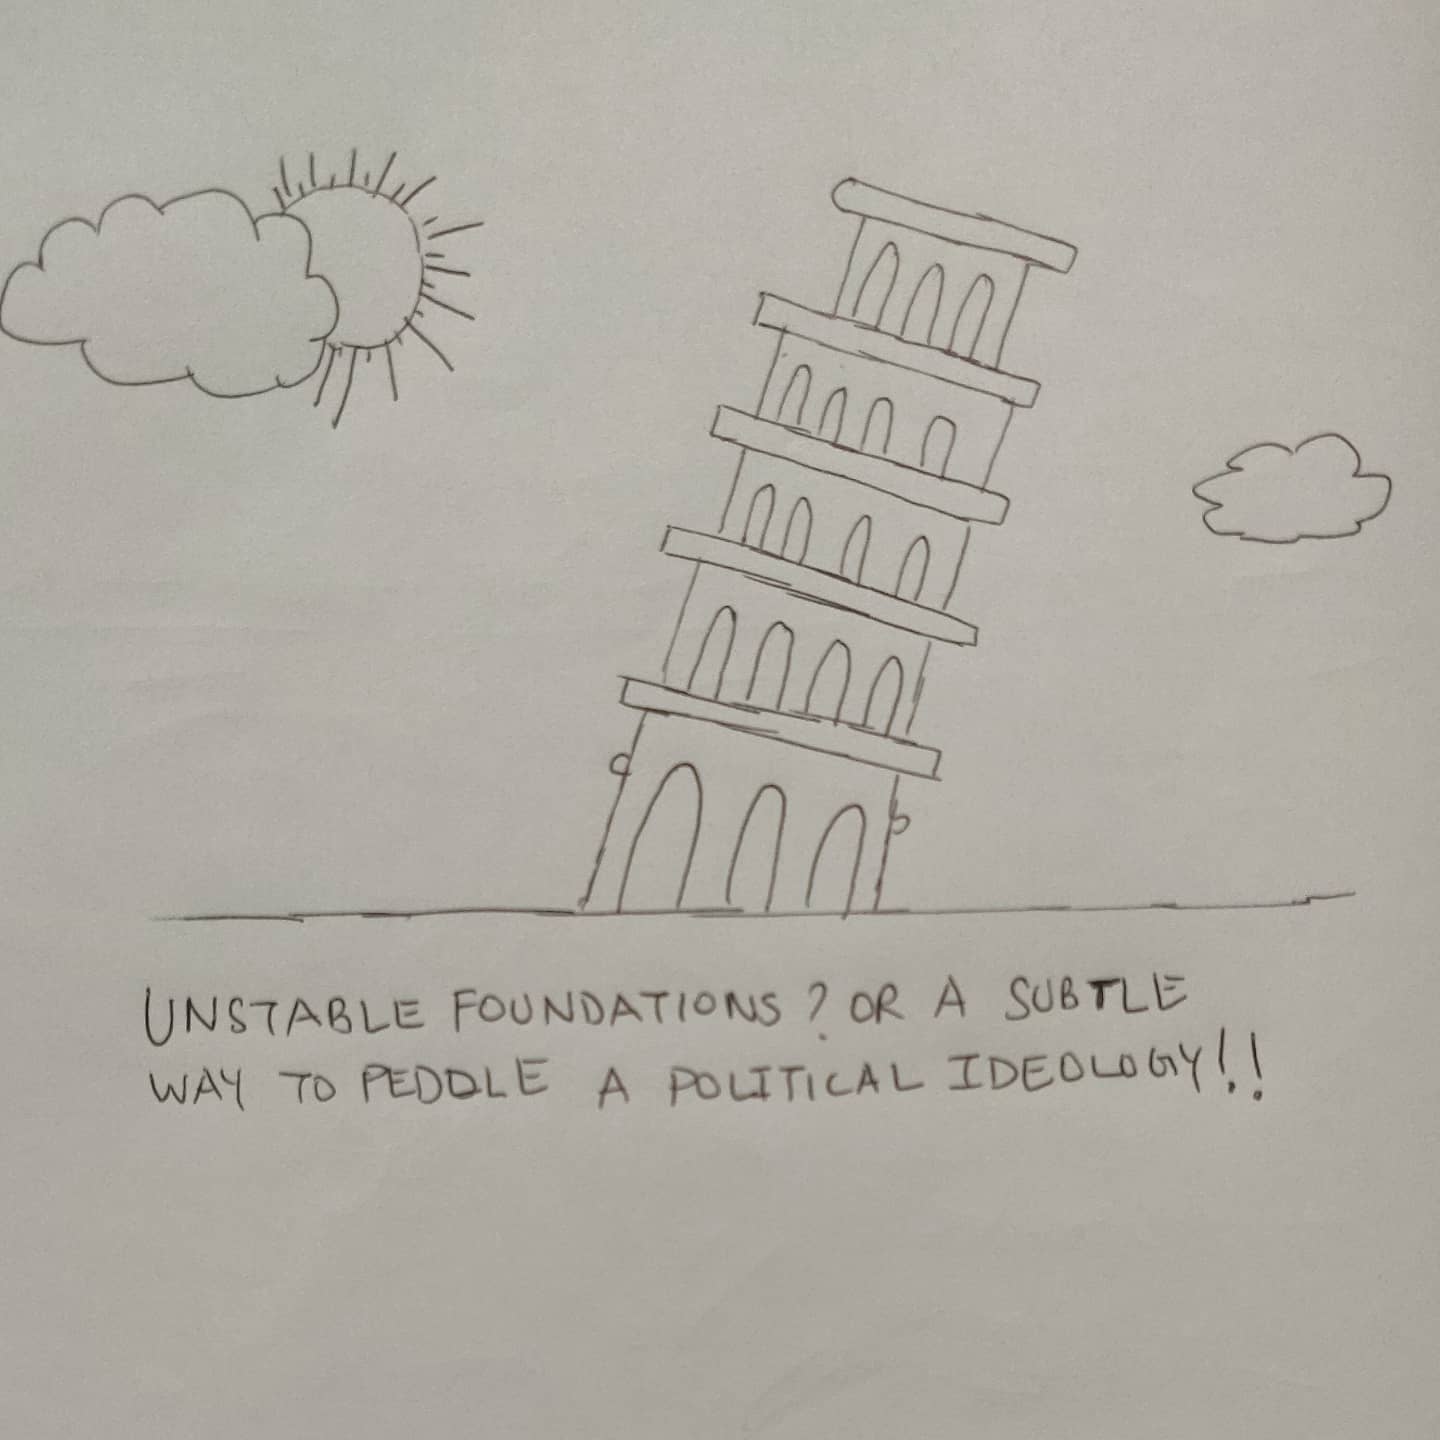 UNSTABLE FOUNDATIONS? OR A SUBTLE
WAY TO PEDDLE A POLITICAL IDEOLOGY!!